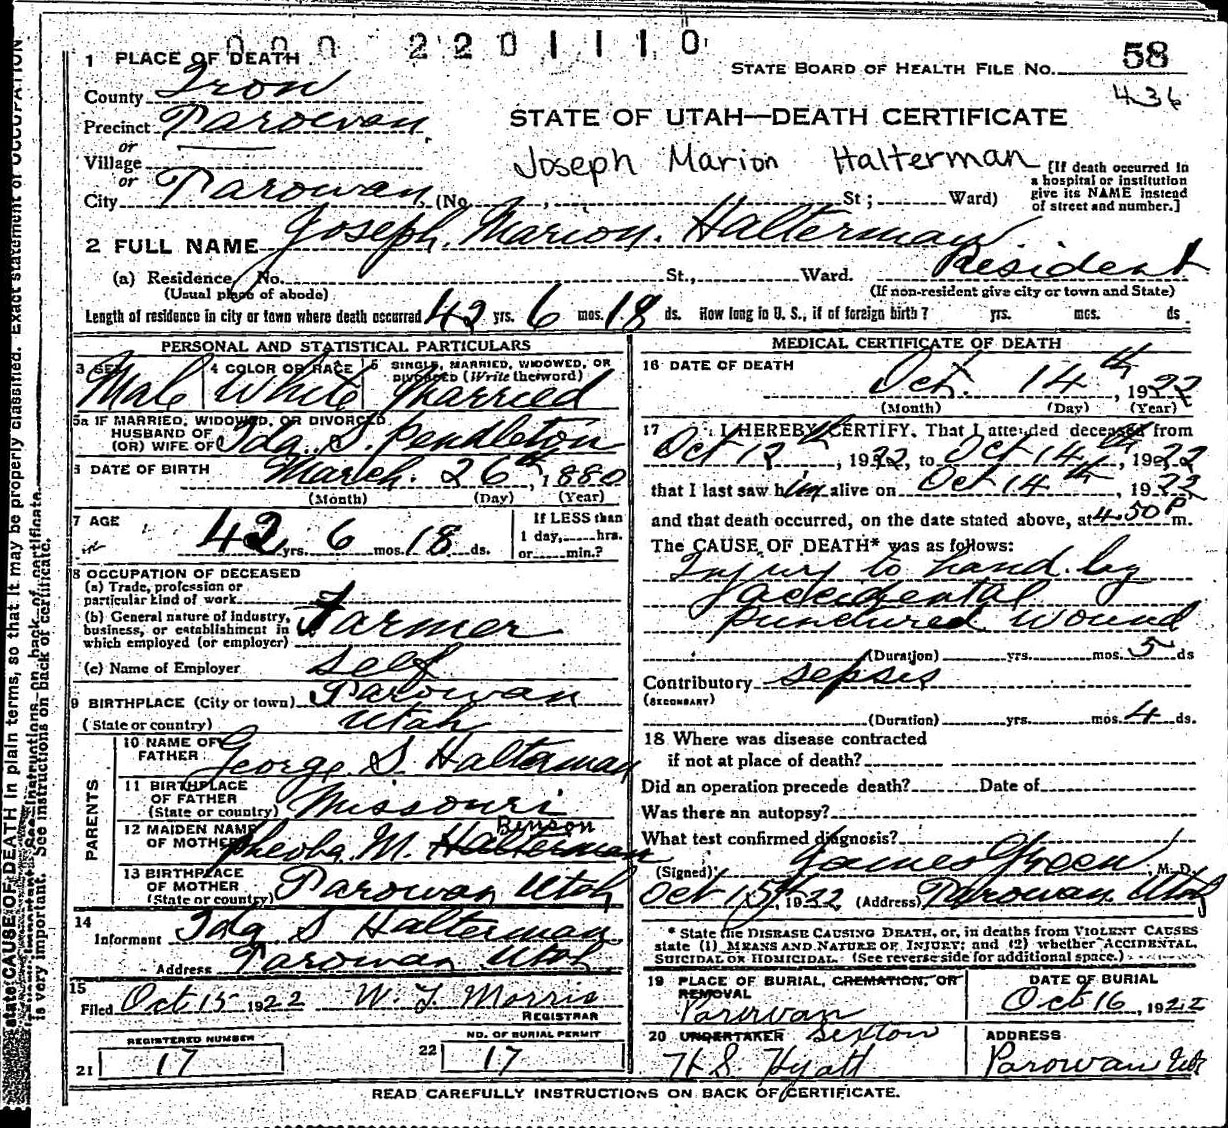 000 2201110
1 PLACE OF DEATH
STATE BOARD OF HEALTH FILE No. 58
436
County Iron
STATE OF UTAH—DEATH CERTIFICATE
Precinct Parowan
or
Village
or
Joseph Marion Halterman
[If death occurred in a hospital or institution give its NAME instead of street and number.]
City Parowan (No. , St; Ward)
2 FULL NAME Joseph Marion Halterman
(a) Residence No. St., Ward. Resident
(Usual place of abode) (If non-resident give city or town and State)
Length of residence in city or town where death occurred 42 yrs. 6 mos. 18 ds. How long in U. S., if of foreign birth? yrs. mos. ds.
PERSONAL AND STATISTICAL PARTICULARS
3 SEX Male
4 COLOR OR RACE White
5 SINGLE, MARRIED, WIDOWED, OR DIVORCED (Write the word) Married
5a IF MARRIED, WIDOWED, OR DIVORCED
HUSBAND OF
(OR) WIFE OF Ida S. Pendleton
6 DATE OF BIRTH March 26th, 1880
(Month) (Day) (Year)
7 AGE 42 yrs. 6 mos. 18 ds.
If LESS than
1 day, hrs.
or min.?
8 OCCUPATION OF DECEASED
(a) Trade, profession or
particular kind of work
(b) General nature of industry,
business, or establishment in
which employed (or employer) Farmer
(c) Name of Employer self
9 BIRTHPLACE (City or town) Parowan
(State or country) Utah
PARENTS
10 NAME OF
FATHER George S. Halterman
11 BIRTHPLACE
OF FATHER
(State or country) Missouri
12 MAIDEN NAME
OF MOTHER M. Halterman Benson
13 BIRTHPLACE
OF MOTHER
(State or country) Parowan Utah
14
Informant Ida S Halterman
Address Parowan Utah
15
Filed Oct 15 1922 W. Morris
REGISTRAR
REGISTERED NUMBER
21 17
NO. OF BURIAL PERMIT
22 17
MEDICAL CERTIFICATE OF DEATH
16 DATE OF DEATH
Oct. 14th, 1922
(Month) (Day) (Year)
17 I HEREBY CERTIFY, That I attended deceased from
Oct 12th, 1922, to Oct 14th, 1922
that I last saw him alive on Oct 14th 1922
and that death occurred, on the date stated above, at 4.50 P m.
The CAUSE OF DEATH* was as follows:
Injury to hand by
accidental
punctured wound
(Duration) yrs. mos. 5 ds
Contributory sepsis
(SECONDARY)
(Duration) yrs. mos. 4 ds.
18 Where was disease contracted
if not at place of death?
Did an operation precede death? Date of
Was there an autopsy?
What test confirmed diagnosis?
(Signed) James Green, M. D.
Oct 15, 1922 (Address) Parowan Utah
* State the DISEASE CAUSING DEATH, or, in deaths from VIOLENT CAUSES
state (1) MEANS AND NATURE OF INJURY; and (2) whether ACCIDENTAL,
SUICIDAL OR HOMICIDAL. (See reverse side for additional space.)
19 PLACE OF BURIAL, CREMATION, OR
REMOVAL
Parowan
DATE OF BURIAL
Oct 16, 1922
20 UNDERTAKER Sexton
H S Hyatt
ADDRESS
Parowan Ut
READ CAREFULLY INSTRUCTIONS ON BACK OF CERTIFICATE.
state CAUSE OF DEATH in plain terms, so that it may be properly classified. Exact statement of OCCUPATION
is very important. See instructions on back of certificate.